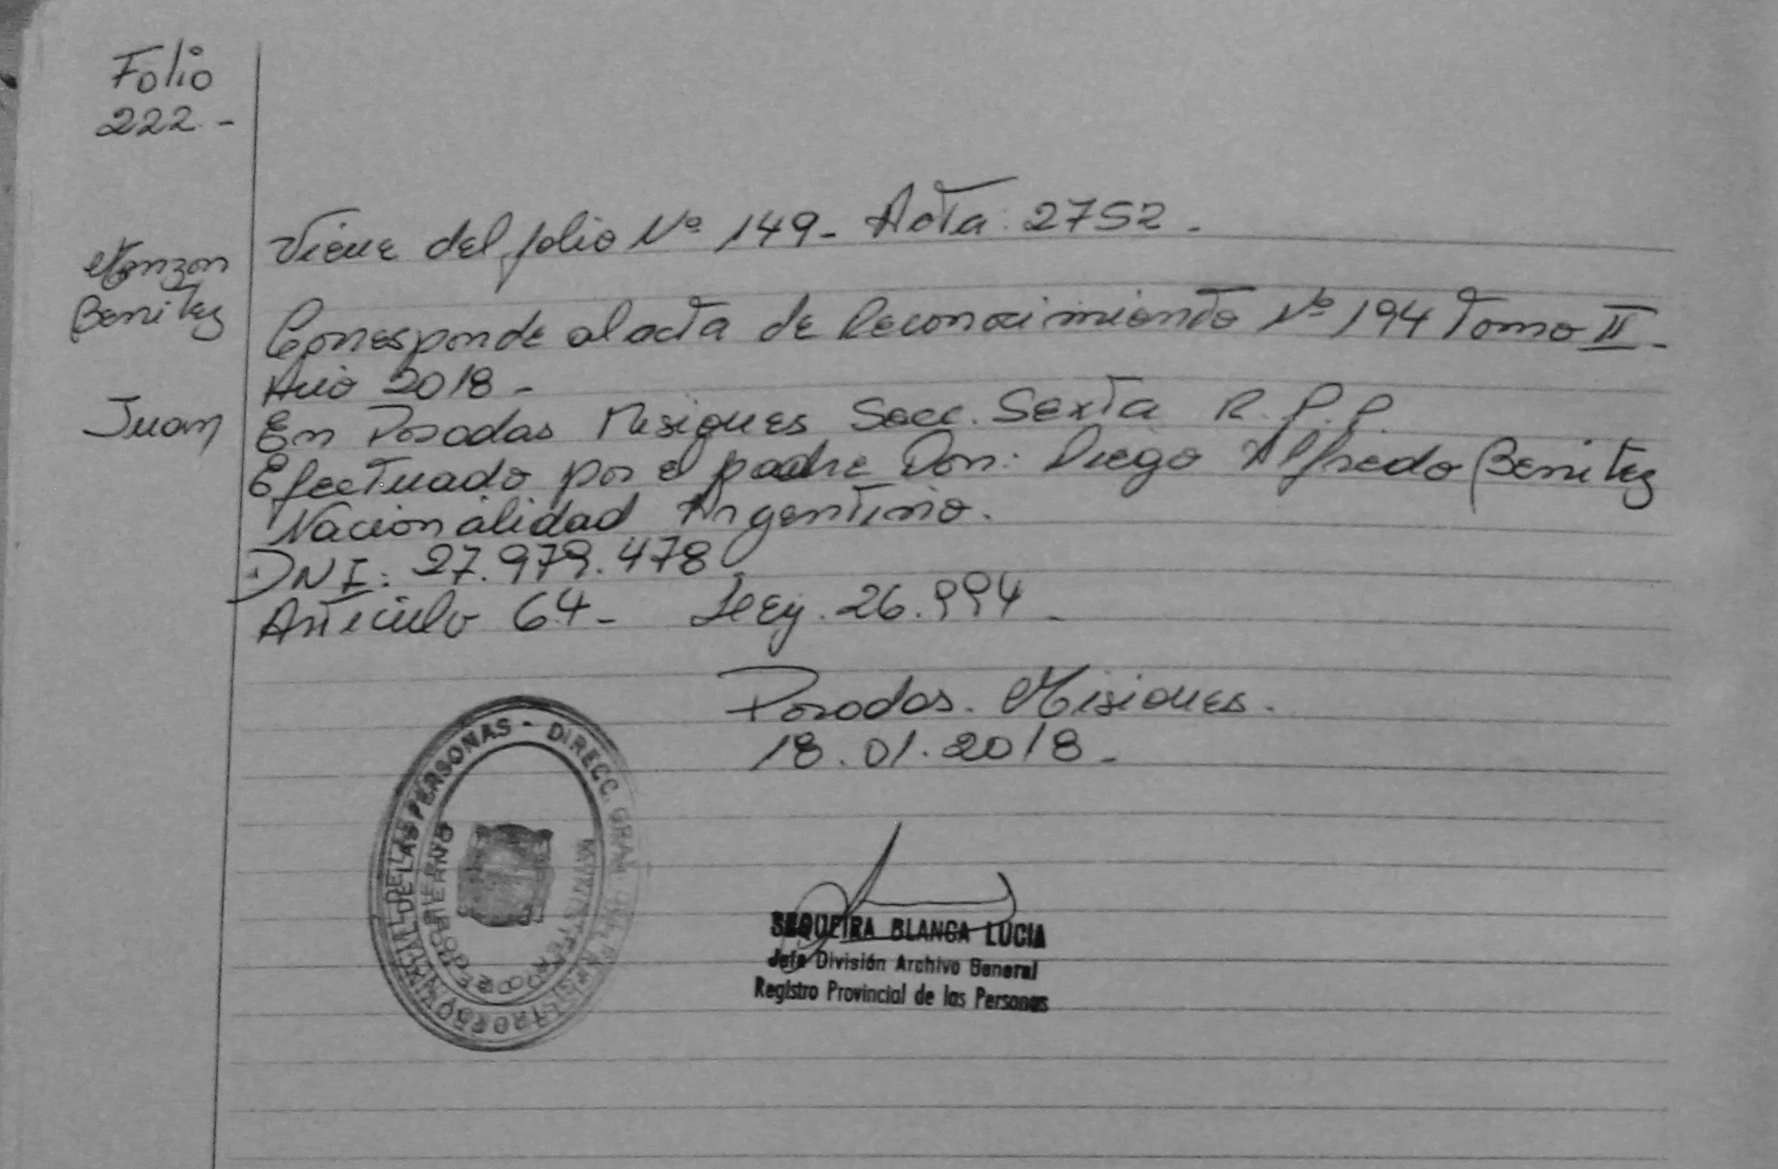 Folio
222.-
Viene del folio Nº 149- Acta: 2752.
Monzon
Benitez
Corresponde al acta de Reconocimiento Nº 194 Tomo II-
Año 2018-
Juan
En Posadas Misiones Secc. Sexta R.P.P.
Efectuado por el padre Don: Diego Alfredo Benitez
Nacionalidad Argentino.
DNI: 27.979.478
Articulo 64- Ley. 26.994-
Posadas. Misiones.
18.01.2018-
DIRECC. GRAL. DEL REGISTRO PROVINCIAL DE LAS PERSONAS -
MINISTERIO DE GOBIERNO
SEQUEIRA BLANCA LUCIA
Jefe División Archivo General
Registro Provincial de las Personas